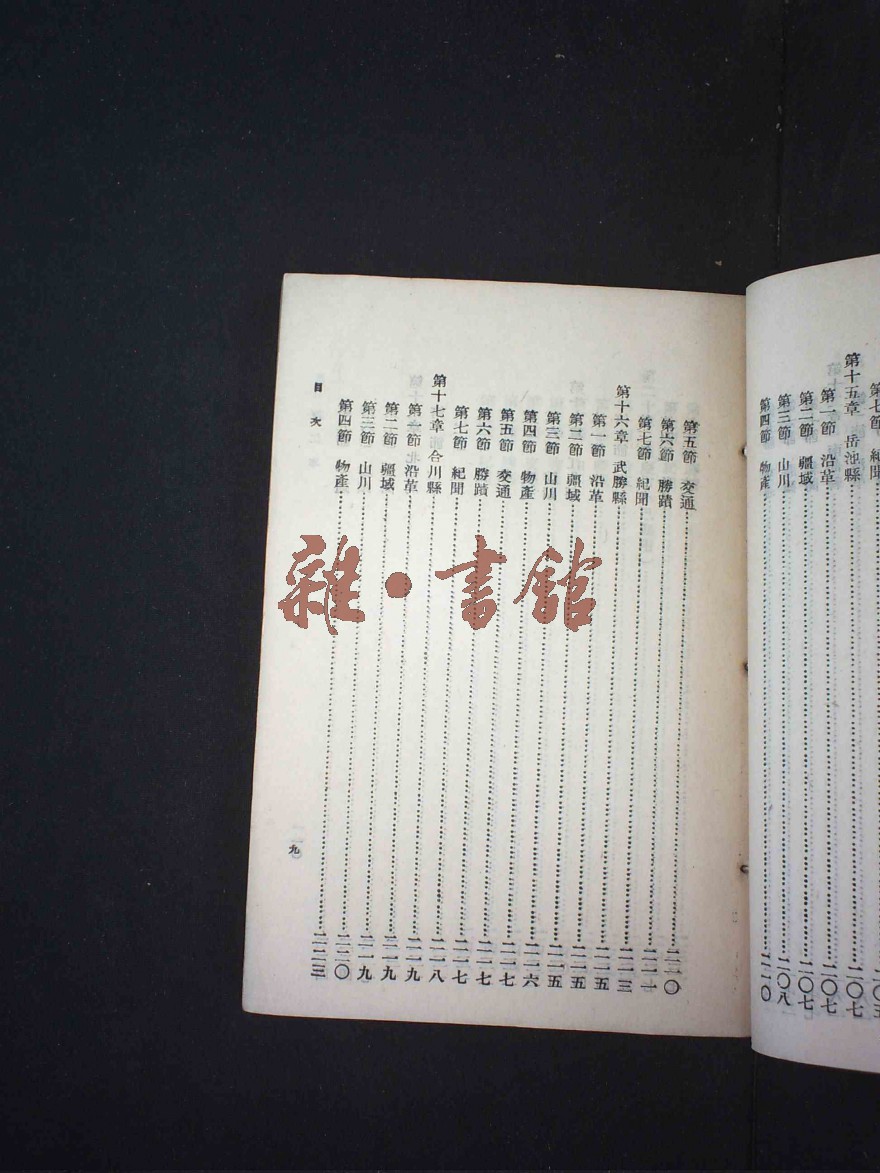 第七節 紀聞
第十五章 岳池縣……二〇七
第一節 沿革……二〇七
第二節 疆域……二〇七
第三節 山川……二〇八
第四節 物產……二一〇
第五節 交通……二一〇
第六節 勝蹟……二一一
第七節 紀聞……二一三
第十六章 武勝縣……二一五
第一節 沿革……二一五
第二節 疆域……二一五
第三節 山川……二一六
第四節 物產……二一七
第五節 交通……二一七
第六節 勝蹟……二一七
第七節 紀聞……二一八
第十七章 合川縣……二一九
第一節 沿革……二一九
第二節 疆域……二一九
第三節 山川……二二〇
第四節 物產……二二三
目次
九
雜·書館